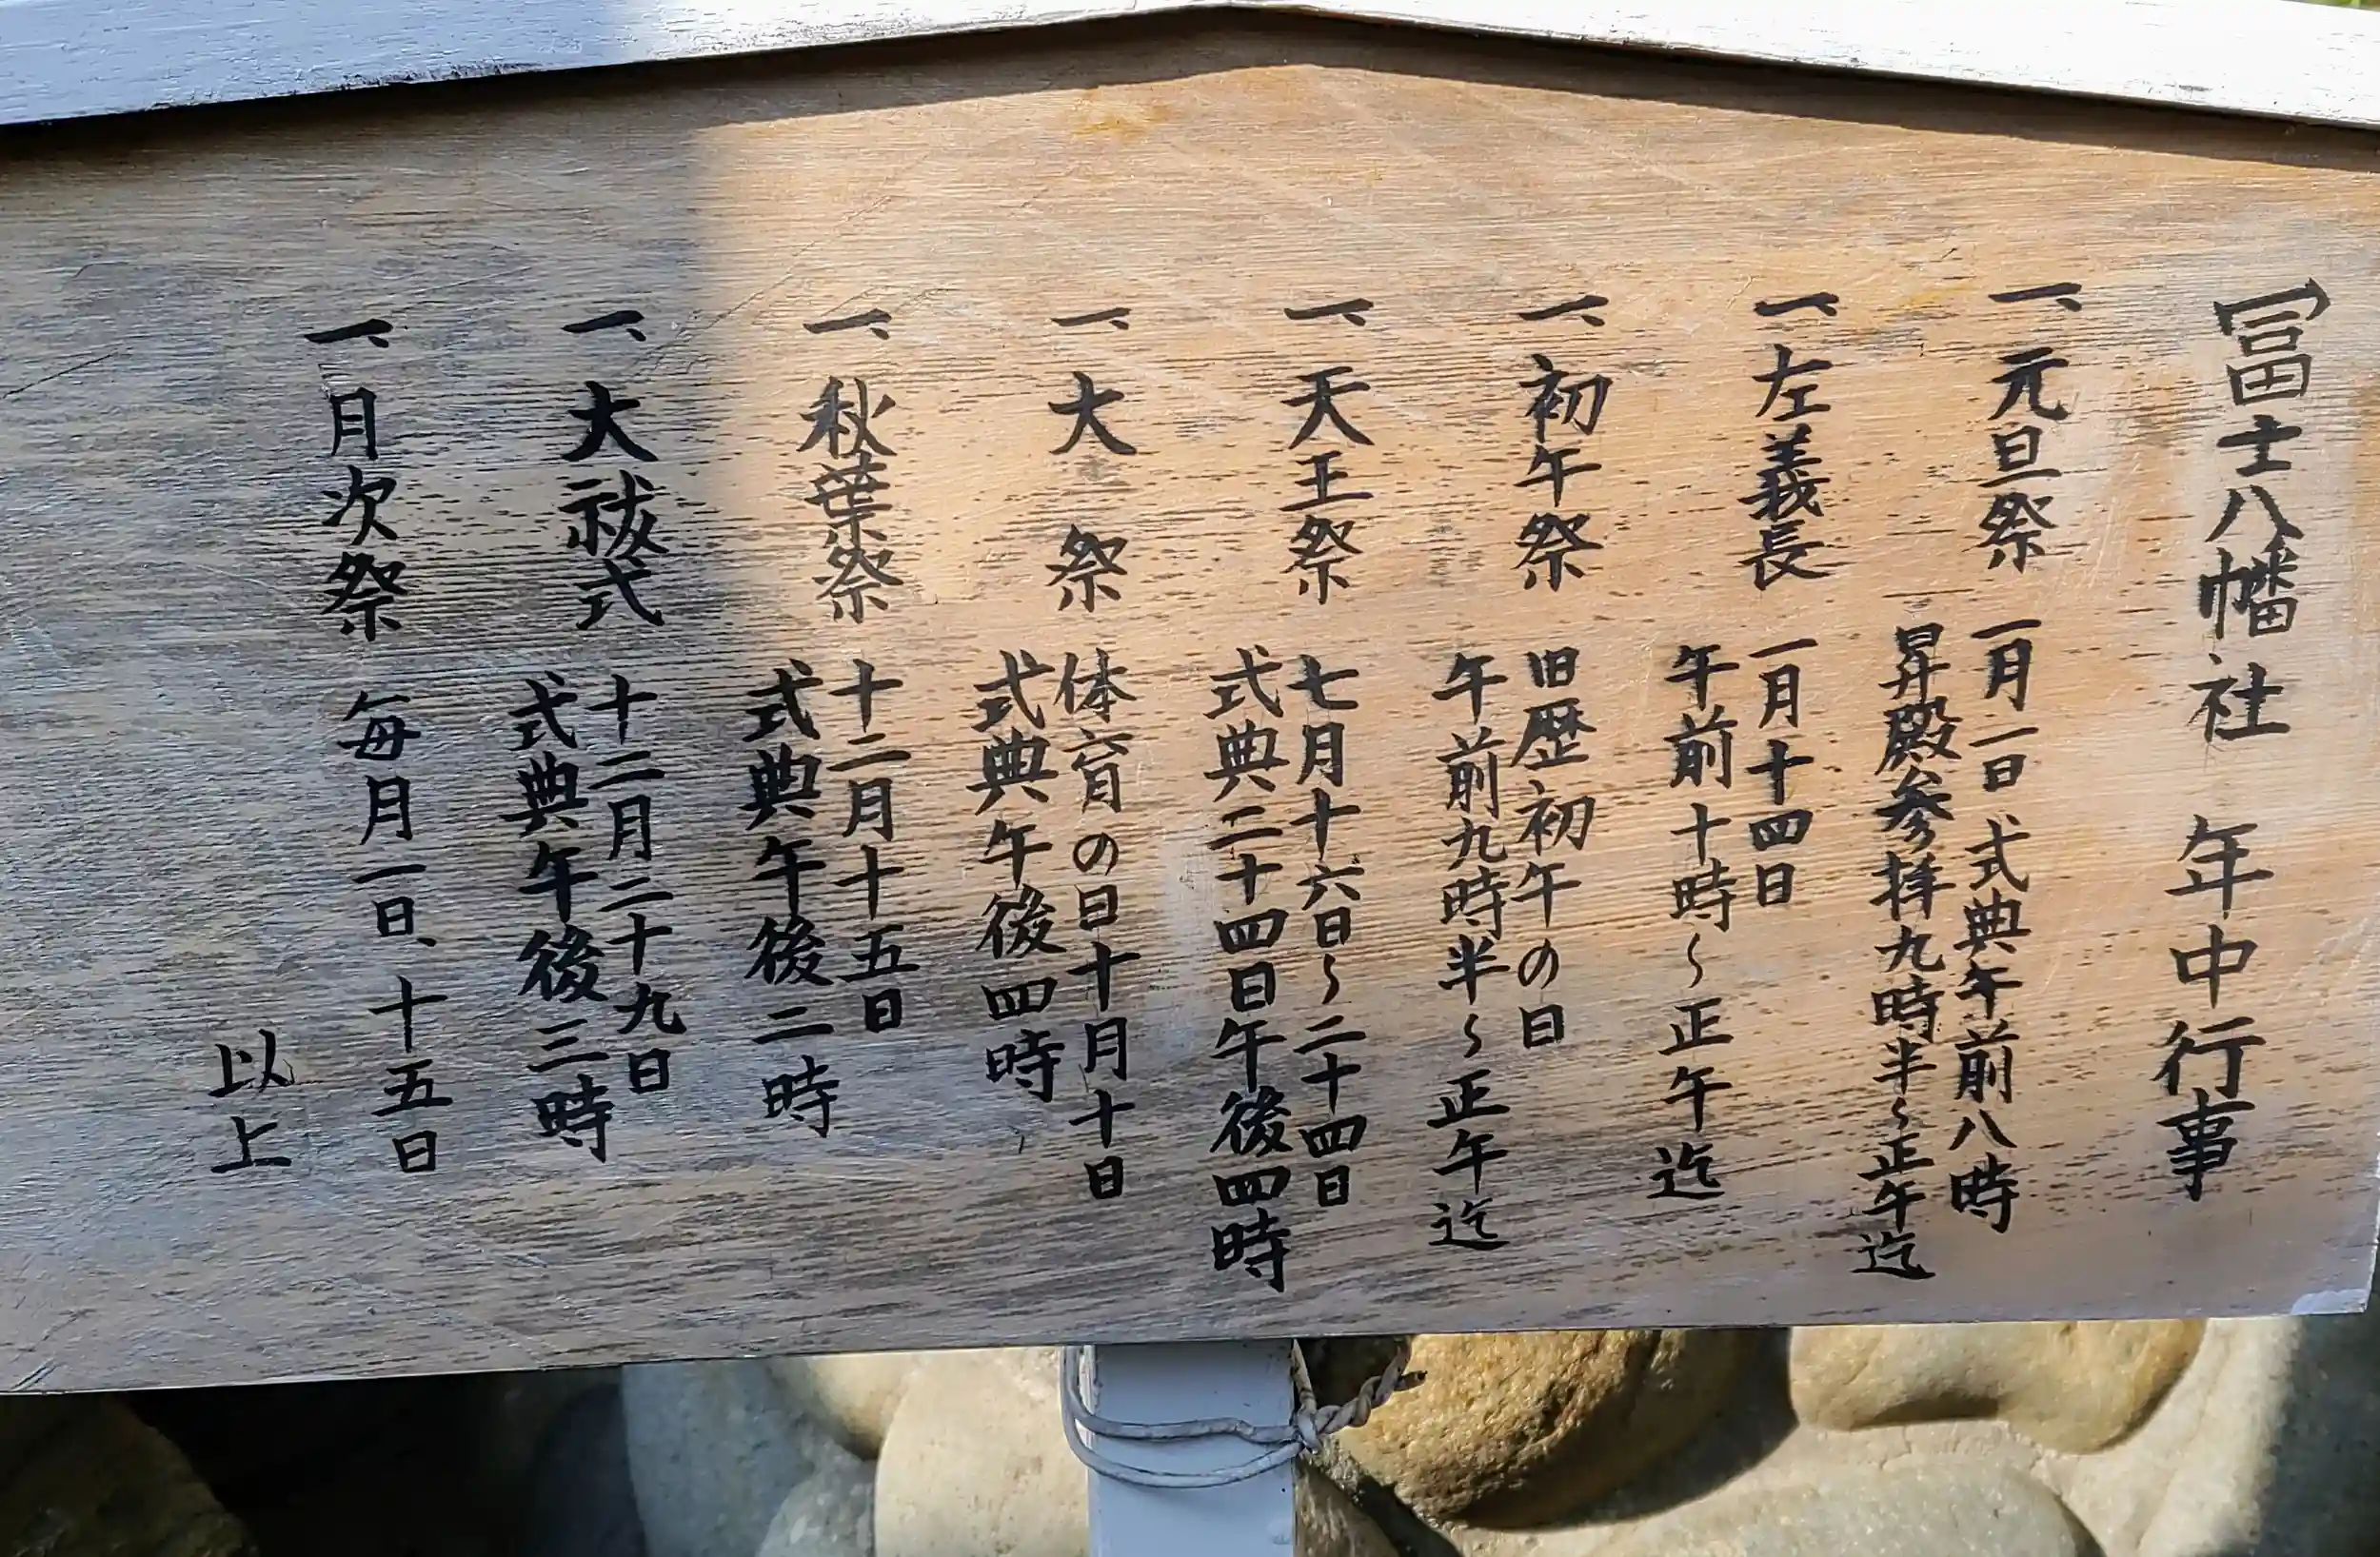 冨士八幡社 年中行事
一、元旦祭 一月一日 式典午前八時
昇殿参拝九時半〜正午迄
一、左義長 一月十四日
午前十時〜正午迄
一、初午祭 旧歴初午の日
午前九時半〜正午迄
一、天王祭 七月十六日〜二十四日
式典二十四日午後四時
一、大祭 体育の日十月十日
式典午後四時
一、秋葉祭 十二月十五日
式典午後二時
一、大祓式 十二月二十九日
式典午後三時
一、月次祭 毎月一日、十五日
以上